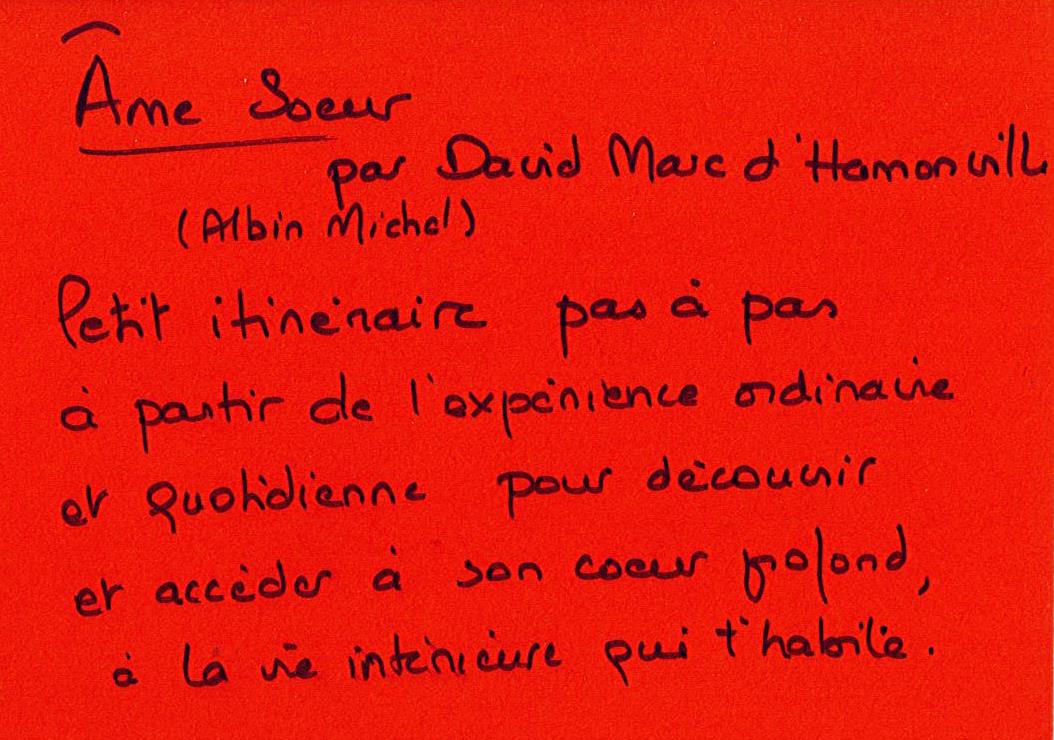 Âme Soeur
par David Marc d'Hamonville
(Albin Michel)
Petit itinéraire pas à pas
à partir de l'expérience ordinaire
et quotidienne pour découvrir
et accéder à son coeur profond,
à la vie intérieure qui t'habite.